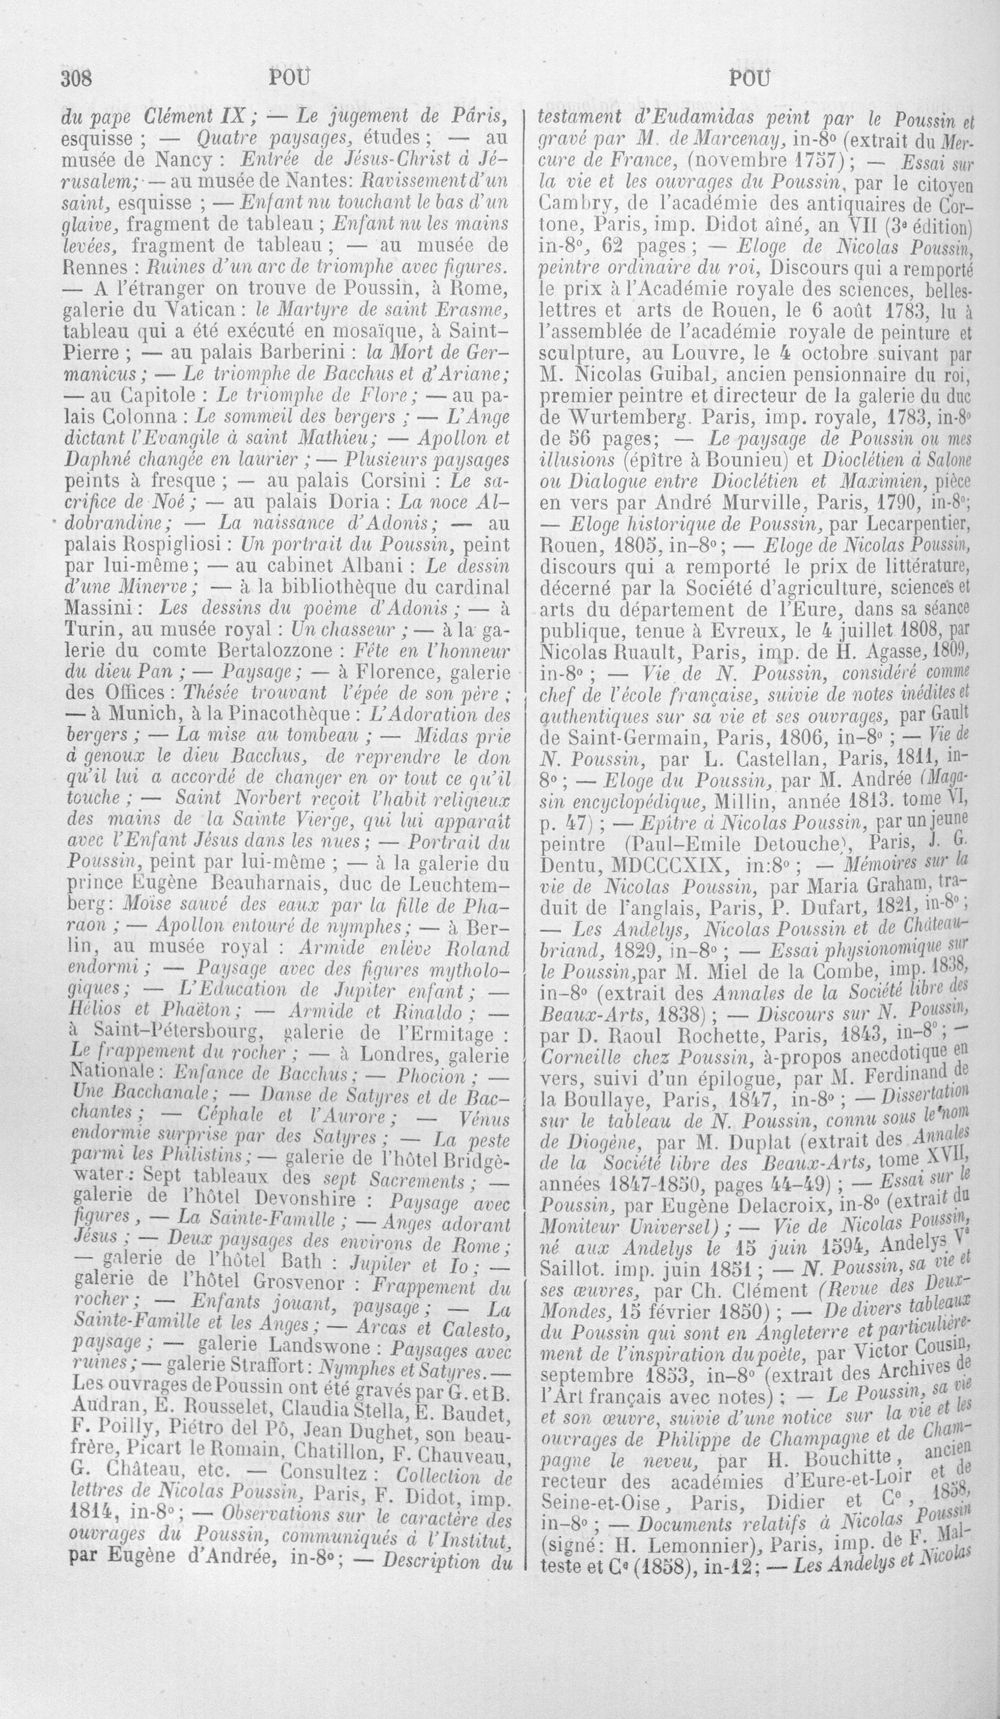 308 POU POU
du pape Clément IX ; — Le jugement de Pâris,
esquisse ; — Quatre paysages, études ; — au
musée de Nancy : Entrée de Jésus-Christ à Jé-
rusalem; — au musée de Nantes: Ravissement d'un
saint, esquisse ; — Enfant nu touchant le bas d'un
glaive, fragment de tableau ; Enfant nu les mains
levées, fragment de tableau ; — au musée de
Rennes : Ruines d'un arc de triomphe avec figures.
— A l'étranger on trouve de Poussin, à Rome,
galerie du Vatican : le Martyre de saint Erasme,
tableau qui a été exécuté en mosaïque, à Saint-
Pierre ; — au palais Barberini : la Mort de Ger-
manicus ; — Le triomphe de Bacchus et d'Ariane;
— au Capitole : Le triomphe de Flore ; — au pa-
lais Colonna : Le sommeil des bergers ; — L'Ange
dictant l'Evangile à saint Mathieu; — Apollon et
Daphné changée en laurier ; — Plusieurs paysages
peints à fresque ; — au palais Corsini : Le sa-
crifice de Noé ; — au palais Doria : La noce Al-
dobrandine ; — La naissance d'Adonis; — au
palais Rospigliosi : Un portrait du Poussin, peint
par lui-même ; — au cabinet Albani : Le dessin
d'une Minerve ; — à la bibliothèque du cardinal
Massini : Les dessins du poème d'Adonis ; — à
Turin, au musée royal : Un chasseur ; — à la ga-
lerie du comte Bertalozzone : Fête en l'honneur
du dieu Pan ; — Paysage ; — à Florence, galerie
des Offices : Thésée trouvant l'épée de son père ;
— à Munich, à la Pinacothèque : L'Adoration des
bergers ; — La mise au tombeau ; — Midas prie
à genoux le dieu Bacchus, de reprendre le don
qu'il lui a accordé de changer en or tout ce qu'il
touche ; — Saint Norbert reçoit l'habit religieux
des mains de la Sainte Vierge, qui lui apparaît
avec l'Enfant Jésus dans les nues ; — Portrait du
Poussin, peint par lui-même ; — à la galerie du
prince Eugène Beauharnais, duc de Leuchtem-
berg: Moïse sauvé des eaux par la fille de Pha-
raon ; — Apollon entouré de nymphes; — à Ber-
lin, au musée royal : Armide enlève Roland
endormi ; — Paysage avec des figures mytholo-
giques; — L'Education de Jupiter enfant ; —
Hélios et Phaëton; — Armide et Rinaldo ; —
à Saint-Pétersbourg, galerie de l'Ermitage :
Le frappement du rocher ; — à Londres, galerie
Nationale : Enfance de Bacchus; — Phocion ; —
Une Bacchanale ; — Danse de Satyres et de Bac-
chantes ; — Céphale et l'Aurore ; — Vénus
endormie surprise par des Satyres ; — La peste
parmi les Philistins ; — galerie de l'hôtel Bridgè-
water : Sept tableaux des sept Sacrements ; —
galerie de l'hôtel Devonshire : Paysage avec
figures , — La Sainte-Famille ; — Anges adorant
Jésus ; — Deux paysages des environs de Rome ;
— galerie de l'hôtel Bath : Jupiter et Io ; —
galerie de l'hôtel Grosvenor : Frappement du
rocher ; — Enfants jouant, paysage ; — La
Sainte-Famille et les Anges ; — Arcas et Calesto,
paysage ; — galerie Landswone : Paysages avec
ruines ; — galerie Straffort : Nymphes et Satyres. —
Les ouvrages de Poussin ont été gravés par G. et B.
Audran, E. Rousselet, Claudia Stella, E. Baudet,
F. Poilly, Piétro del Pô, Jean Dughet, son beau-
frère, Picart le Romain, Chatillon, F. Chauveau,
G. Château, etc. — Consultez : Collection de
lettres de Nicolas Poussin, Paris, F. Didot, imp.
1814, in-8º; — Observations sur le caractère des
ouvrages du Poussin, communiqués à l'Institut,
par Eugène d'Andrée, in-8º; — Description du
testament d'Eudamidas peint par le Poussin et
gravé par M. de Marcenay, in-8º (extrait du Mer-
cure de France, (novembre 1757) ; — Essai sur
la vie et les ouvrages du Poussin, par le citoyen
Cambry, de l'académie des antiquaires de Cor-
tone, Paris, imp. Didot aîné, an VII (3e édition)
in-8º, 62 pages ; — Eloge de Nicolas Poussin,
peintre ordinaire du roi, Discours qui a remporté
le prix à l'Académie royale des sciences, belles-
lettres et arts de Rouen, le 6 août 1783, lu à
l'assemblée de l'académie royale de peinture et
sculpture, au Louvre, le 4 octobre suivant par
M. Nicolas Guibal, ancien pensionnaire du roi,
premier peintre et directeur de la galerie du duc
de Wurtemberg. Paris, imp. royale, 1783, in-8º
de 56 pages; — Le paysage de Poussin ou mes
illusions (épître à Bounieu) et Dioclétien à Salone
ou Dialogue entre Dioclétien et Maximien, pièce
en vers par André Murville, Paris, 1790, in-8º;
— Eloge historique de Poussin, par Lecarpentier,
Rouen, 1805, in-8º ; — Eloge de Nicolas Poussin,
discours qui a remporté le prix de littérature,
décerné par la Société d'agriculture, sciences et
arts du département de l'Eure, dans sa séance
publique, tenue à Evreux, le 4 juillet 1808, par
Nicolas Ruault, Paris, imp. de H. Agasse, 1809,
in-8º ; — Vie de N. Poussin, considéré comme
chef de l'école française, suivie de notes inédites et
authentiques sur sa vie et ses ouvrages, par Gault
de Saint-Germain, Paris, 1806, in-8º ; — Vie de
N. Poussin, par L. Castellan, Paris, 1811, in-
8º ; — Eloge du Poussin, par M. Andrée (Maga-
sin encyclopédique, Millin, année 1813. tome VI,
p. 47) ; — Epître à Nicolas Poussin, par un jeune
peintre (Paul-Emile Detouche), Paris, J. G.
Dentu, MDCCCXIX, in:8º ; — Mémoires sur la
vie de Nicolas Poussin, par Maria Graham, tra-
duit de l'anglais, Paris, P. Dufart, 1821, in-8º ;
— Les Andelys, Nicolas Poussin et de Château-
briand, 1829, in-8º ; — Essai physionomique sur
le Poussin,par M. Miel de la Combe, imp. 1838,
in-8º (extrait des Annales de la Société libre des
Beaux-Arts, 1838) ; — Discours sur N. Poussin,
par D. Raoul Rochette, Paris, 1843, in-8º ; —
Corneille chez Poussin, à-propos anecdotique en
vers, suivi d'un épilogue, par M. Ferdinand de
la Boullaye, Paris, 1847, in-8º ; — Dissertation
sur le tableau de N. Poussin, connu sous le nom
de Diogène, par M. Duplat (extrait des Annales
de la Société libre des Beaux-Arts, tome XVII,
années 1847-1850, pages 44-49) ; — Essai sur le
Poussin, par Eugène Delacroix, in-8º (extrait du
Moniteur Universel) ; — Vie de Nicolas Poussin,
né aux Andelys le 15 juin 1594, Andelys Ve
Saillot. imp. juin 1851 ; — N. Poussin, sa vie et
ses œuvres, par Ch. Clément (Revue des Deux-
Mondes, 15 février 1850) ; — De divers tableaux
du Poussin qui sont en Angleterre et particulière-
ment de l'inspiration du poète, par Victor Cousin,
septembre 1853, in-8º (extrait des Archives de
l'Art français avec notes) ; — Le Poussin, sa vie
et son œuvre, suivie d'une notice sur la vie et les
ouvrages de Philippe de Champagne et de Cham-
pagne le neveu, par H. Bouchitte, ancien
recteur des académies d'Eure-et-Loir et de
Seine-et-Oise, Paris, Didier et Ce , 1858,
in-8º ; — Documents relatifs à Nicolas Poussin
(signé: H. Lemonnier), Paris, imp. de F. Mal-
teste et Ce (1858), in-12; — Les Andelys et Nicolas